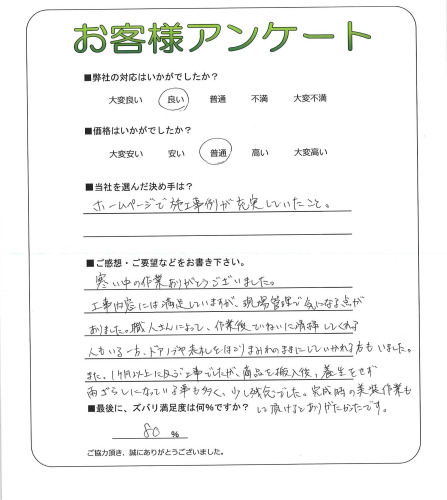 お客様アンケート
■弊社の対応はいかがでしたか?
大変良い 良い 普通 不満 大変不満
■価格はいかがでしたか?
大変安い 安い 普通 高い 大変高い
■当社を選んだ決め手は?
ホームページで施工事例が充実していたこと。
■ご感想・ご要望などをお書き下さい。
寒い中の作業ありがとうございました。
工事内容には満足していますが、現場管理で気になる点が
ありました。職人さんによって、作業後ていねいに清掃してくれる
人もいる一方、ドアノブや表札をほこりまみれのままにしていかれる方もいました。
また、1ヶ月以上に及ぶ工事でしたが、商品を搬入後、養生をせず
雨ざらしになっている事も多く、少し残念でした。完成時の美装作業も
して頂けるとありがたかったです。
■最後に、ズバリ満足度は何%ですか?
80 %
ご協力頂き、誠にありがとうございました。